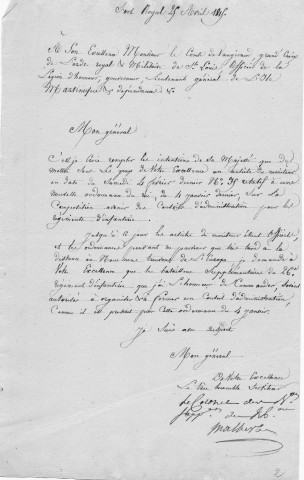 Fort Royal 25 Avril 1815.
A Son Excellence Monsieur le Comte de Vaugiraud, grand Croix
de l'ordre royal & Militaire de St Louis, Officier de la
Légion d'honneur, gouverneur, Lieutenant général de l'Ile
Martinique & dépendances &a
Mon général
C'est je crois remplir les intentions de Sa Majesté que de
mettre sous les yeux de Votre Excellence un article du moniteur
en date du Samedi 4 février dernier No 35 relatif à une
nouvelle ordonnance du roi, du 4 janvier dernier sur la
Composition des Conseils d'administration pour les
régiments d'infanterie.
jusqu'à ce jour les articles du moniteur étant Officiels,
et les ordonnances
je demande à
Votre Excellence que le bataillon Supplémentaire du 26e
régiment d'infanterie que j'ai l'honneur de Commander, soit
autorisé à organiser & à former un Conseil d'administration,
Comme il est prescrit par cette ordonnance du 4 janvier.
Je Suis avec respect
Mon général
De Votre Excellence
Le très humble Serviteur
Le Colonel du Bon
Supre du 26e
Malherbe
2